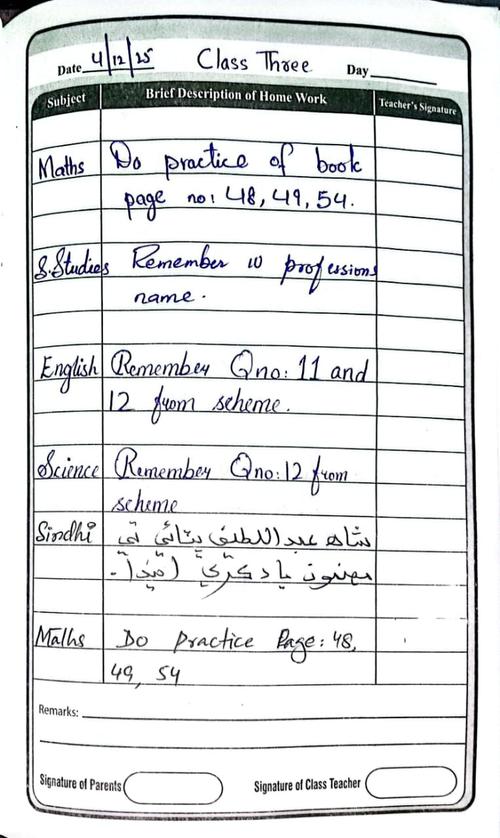 Date 4/12/25 Class Three Day
Subject Brief Description of Home Work Teacher's Signature
Maths Do practice of book
page no: 48, 49, 54.
S.Studies Remember 10 professions
name.
English Remember Qno: 11 and
12 from scheme.
Science Remember Qno: 12 from
scheme
Sindhi شاھ عبداللطيف ڀٽائي تي
مضمون ياد ڪري
Maths Do Practice Page: 48,
49, 54
Remarks:
Signature of Parents Signature of Class Teacher